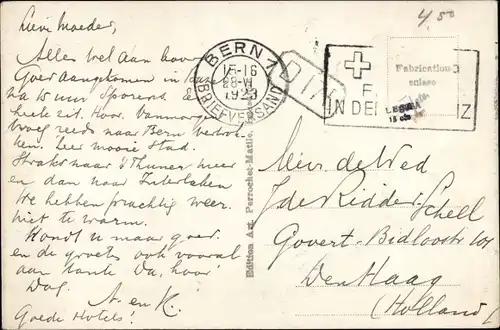 Lieve Moeder,
Alles wel aan boord
Goed aangekomen in
na 15 uur Sporens.
heele zit. Hoor. Vanmorgen
vroeg reeds naar Bern vertrok-
ken. Zeer mooie Stad.
Straks naar 't Thuner meer
en dan naar Interlaken
We hebben prachtig weer.
niet te warm.
Houdt u maar goed
en de groeten ook vooral
aan tante Da, hoor
Dag.
A. en K.
Goede Hotels!
BERN 1
15-16
28.VI
1923
BRIEFVERSAND
Edition Art. Perrochet-Matile,
4.50
Fabrication
suisse
F
IN DE Z
15
Mevr. de Wed
J de Ridder-Schell
Govert-Bidloostr 101
Den Haag
(Holland)